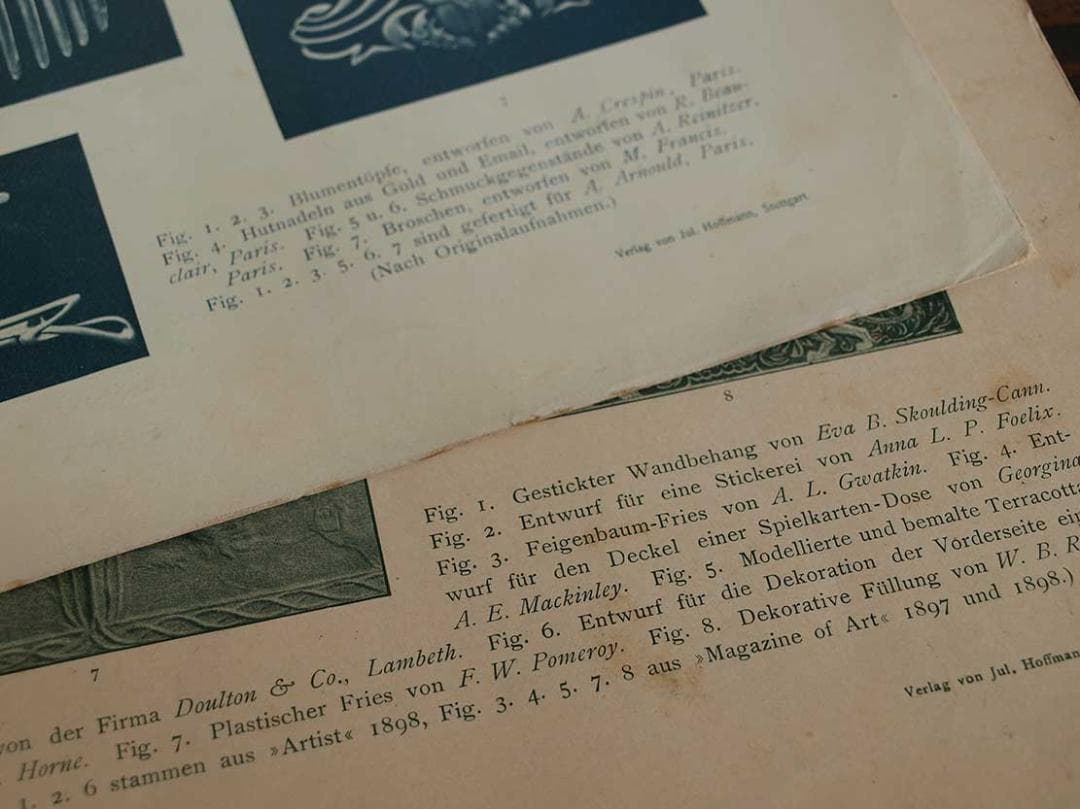 7
Fig. 1. 2. 3. Blumentöpfe, entworfen von A. Crespin, Paris.
Fig. 4. Hutnadeln aus Gold und Email, entworfen von R. Beau-
clair, Paris. Fig. 5 u. 6. Schmuckgegenstände von A. Reinitzer,
Paris. Fig. 7. Broschen, entworfen von M. Francis.
Fig. 1. 2. 3. 5. 6. 7 sind gefertigt für A. Arnould, Paris.
(Nach Originalaufnahmen.)
Verlag von Jul. Hoffmann, Stuttgart.
8
Fig. 1. Gestickter Wandbehang von Eva B. Skoulding-Cann.
Fig. 2. Entwurf für eine Stickerei von Anna L. P. Foelix.
Fig. 3. Feigenbaum-Fries von A. L. Gwatkin. Fig. 4. Ent-
wurf für den Deckel einer Spielkarten-Dose von Georgina
A. E. Mackinley. Fig. 5. Modellierte und bemalte Terracotta
7
von der Firma Doulton & Co., Lambeth. Fig. 6. Entwurf für die Dekoration der Vorderseite ein
Horne. Fig. 7. Plastischer Fries von F. W. Pomeroy. Fig. 8. Dekorative Füllung von W. B. R
1. 2. 6 stammen aus »Artist« 1898, Fig. 3. 4. 5. 7. 8 aus »Magazine of Art« 1897 und 1898.)
Verlag von Jul. Hoffmann